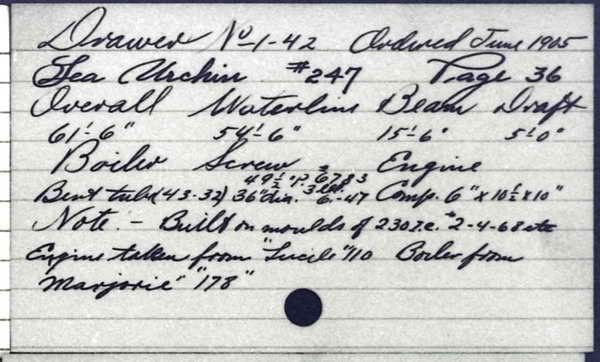 Drawer No-1-42 Ordered June 1905
Sea Urchin #247 Page 36
Overall Waterline Beam Draft
61'-6" 54'-6" 15'-6" 5'0"
Boiler Screw Engine
49½" p. 6783
Bent tube (43-32) 36" dia. 3 bl. 6-47 Comp. 6" x 10½ x 10"
Note:- Built on moulds of 230 T.E. #2-4-68 etc
Engine taken from "Lucile" 110 Boiler from
Marjorie" "178"